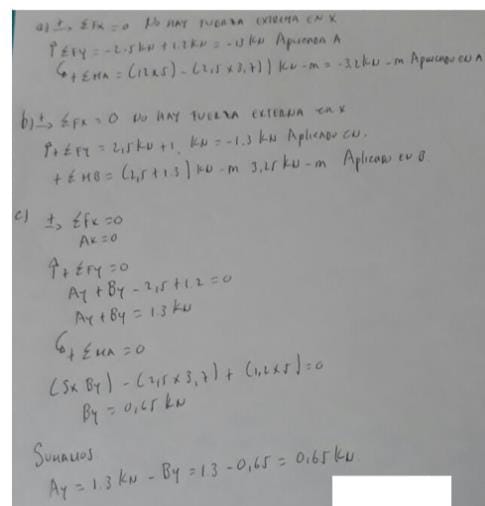 a) ±→ ΣFx = 0 NO HAY FUERZA EXTERNA EN X
↑ ΣFY = -2.5KN + 1.2KN = -13KN Aplicada A
↺+ ΣMA = (1.2x5) - (2,5x3,7) KN-m = -3.2KN-m Aplicado EN A
b) ±→ ΣFx = 0 NO HAY FUERZA EXTERNA EN X
↑+ ΣFY = 2,5KN + 1. KN = -1.3 KN Aplicado EN.
+ ΣMB = (2,5 x 1.3) KN-m 3,25KN-m Aplicado EN B.
c) ±→ ΣFx = 0
Ax = 0
↑+ ΣFY = 0
AY + BY - 2,5 + 1.2 = 0
AY + BY = 1.3 KN
↺+ ΣMA = 0
(5x BY) - (2,5x3,7) + (1,2x5) = 0
BY = 0,65 KN
SUMAMOS
AY = 1.3 KN - BY = 1.3 - 0,65 = 0,65 KN.